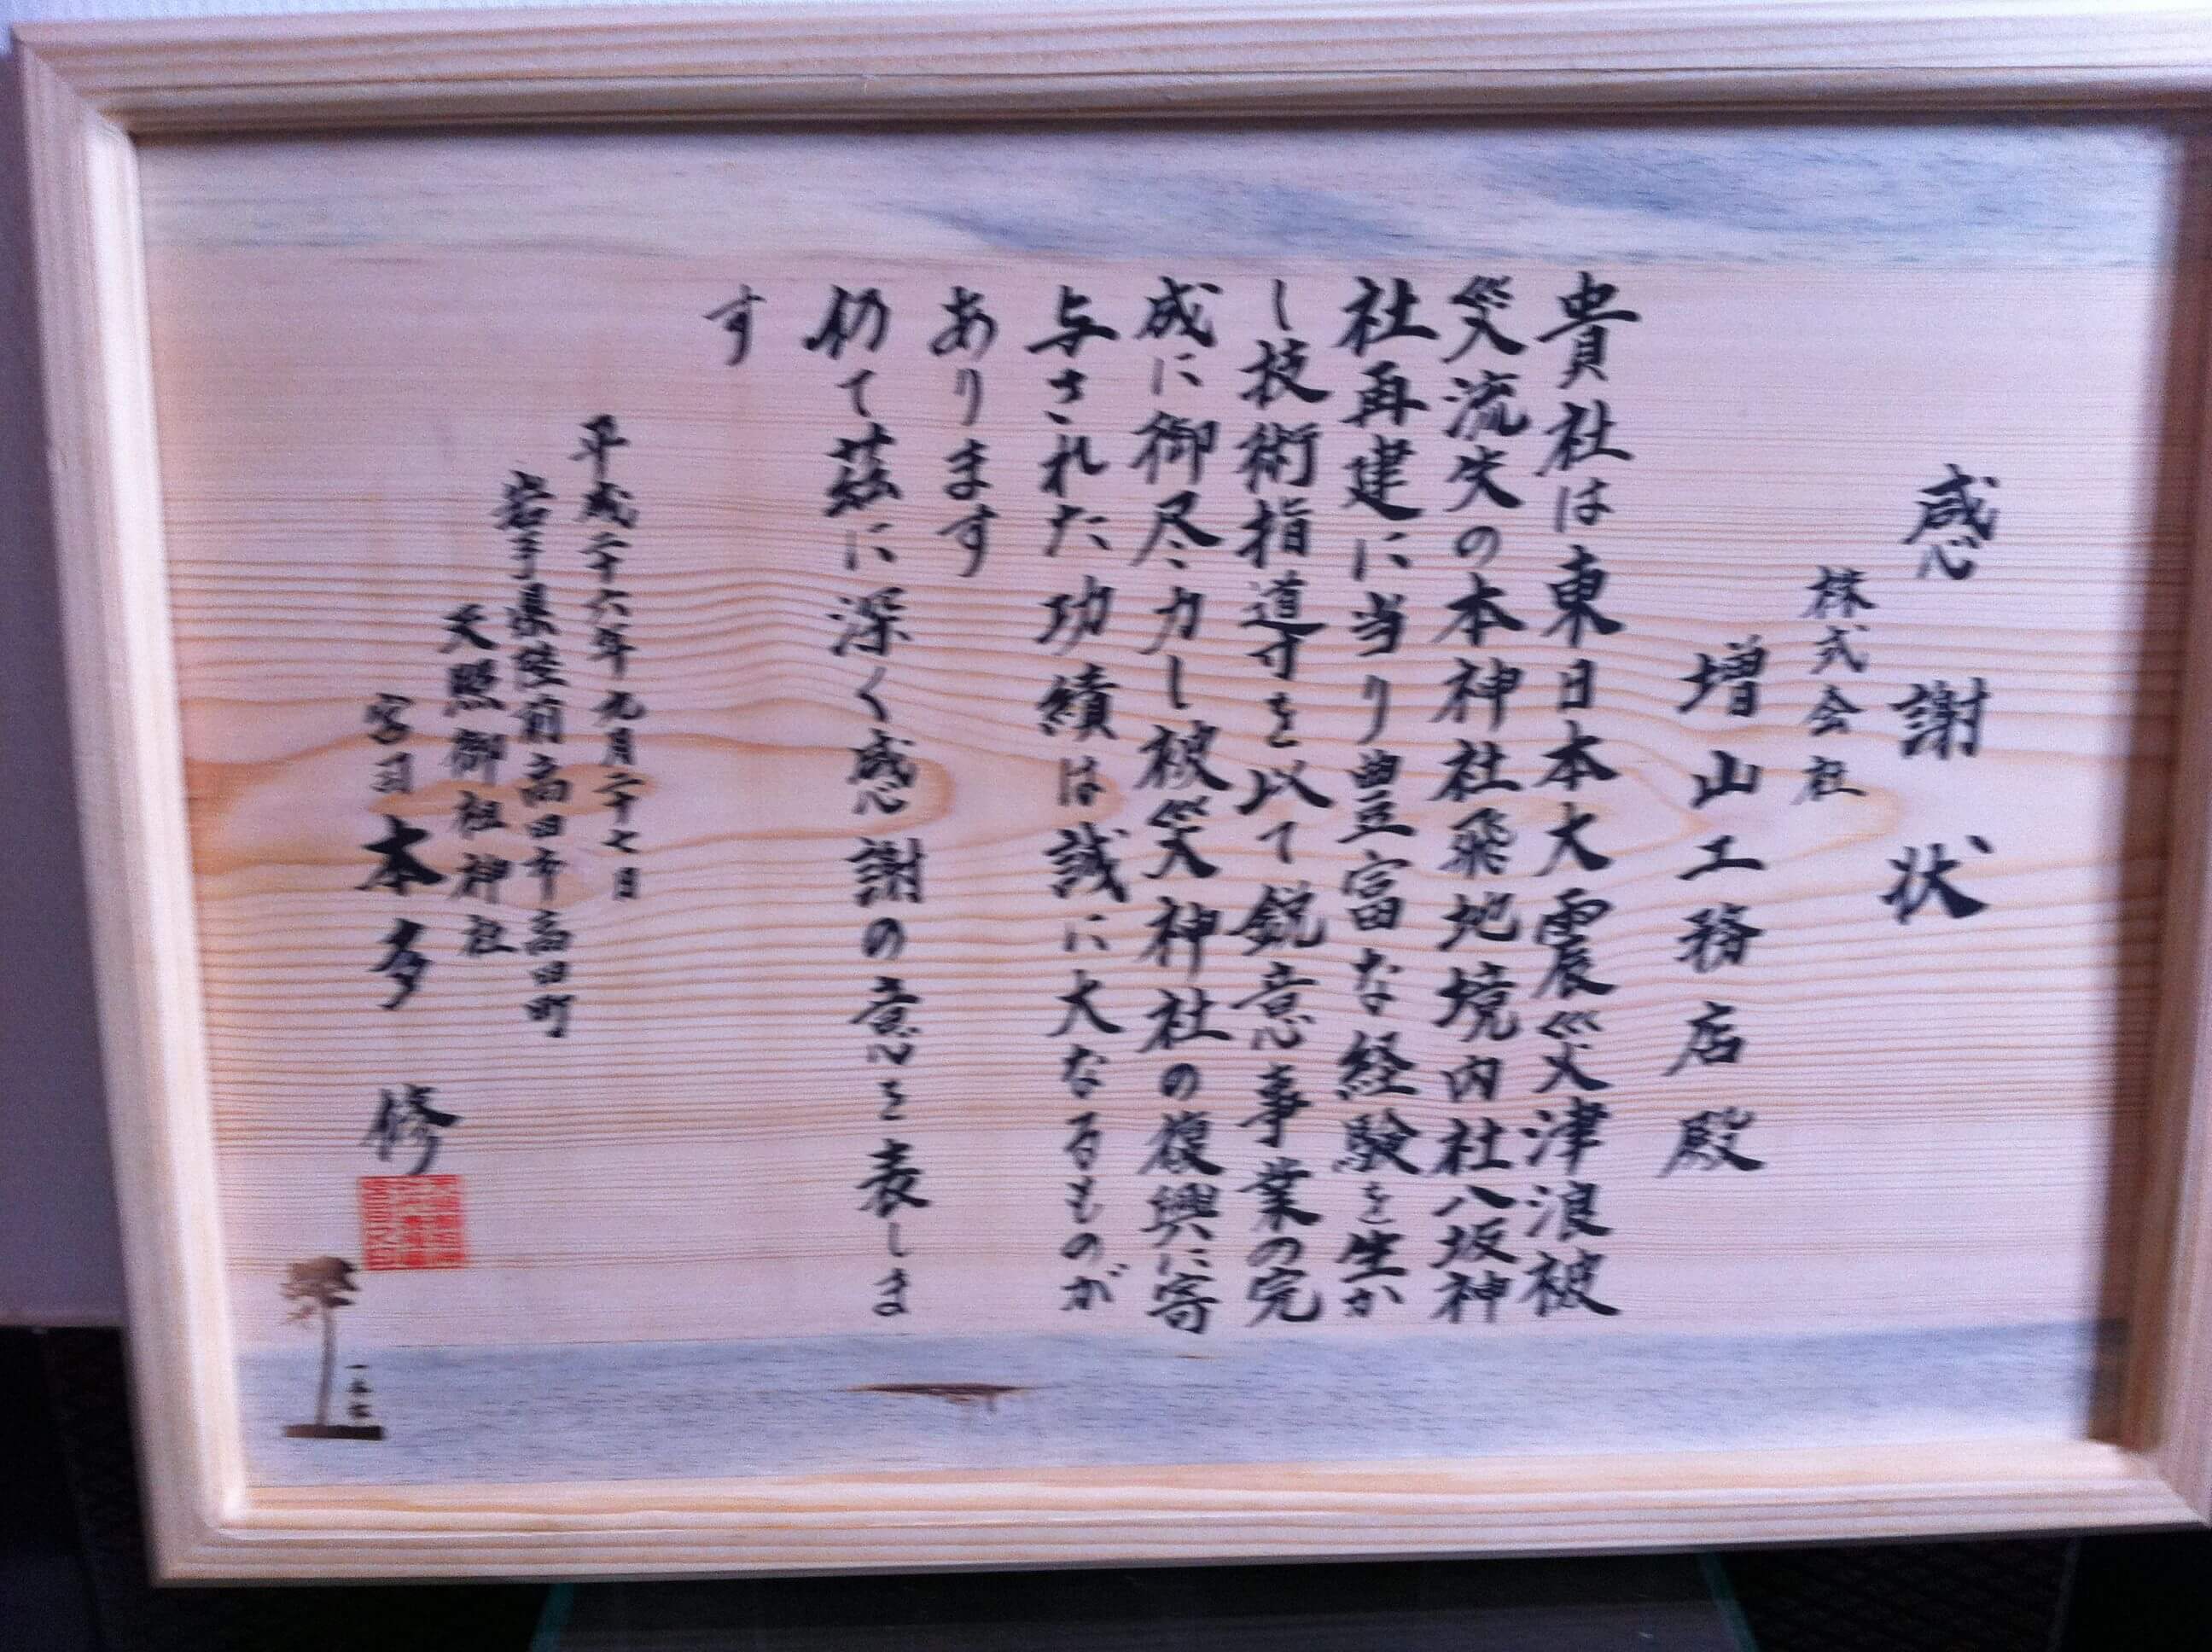 感謝状
株式会社
増山工務店殿
貴社は東日本大震災津浪被
災流失の本神社飛地境内社八坂神
社再建に当り豊富な経験を生か
し技術指導を以て鋭意事業の完
成に御尽力し被災神社の復興に寄
与された功績は誠に大なるものが
あります
仍て茲に深く感謝の意を表しま
す
平成二十六年九月二十七日
岩手県陸前高田市高田町
天照御祖神社
宮司 本多 修
一本松